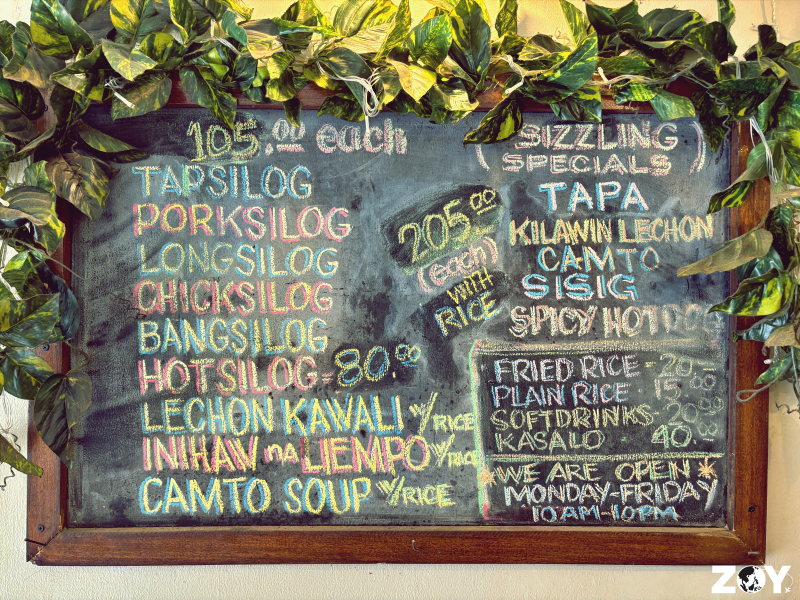 105.00 each
TAPSILOG
PORKSILOG
LONGSILOG
CHICKSILOG
BANGSILOG
HOTSILOG - 80.00
LECHON KAWALI W/RICE
INIHAW na LIEMPO W/RICE
CAMTO SOUP W/RICE
205.00
(each)
WITH
RICE
(SIZZLING
SPECIALS)
TAPA
KILAWIN LECHON
CAMTO
SISIG
SPICY HOTDOG
FRIED RICE - 20.-
PLAIN RICE 15.00
SOFTDRINKS - 20.00
KASALO 40.-
WE ARE OPEN
MONDAY-FRIDAY
10AM-10PM
ZOY